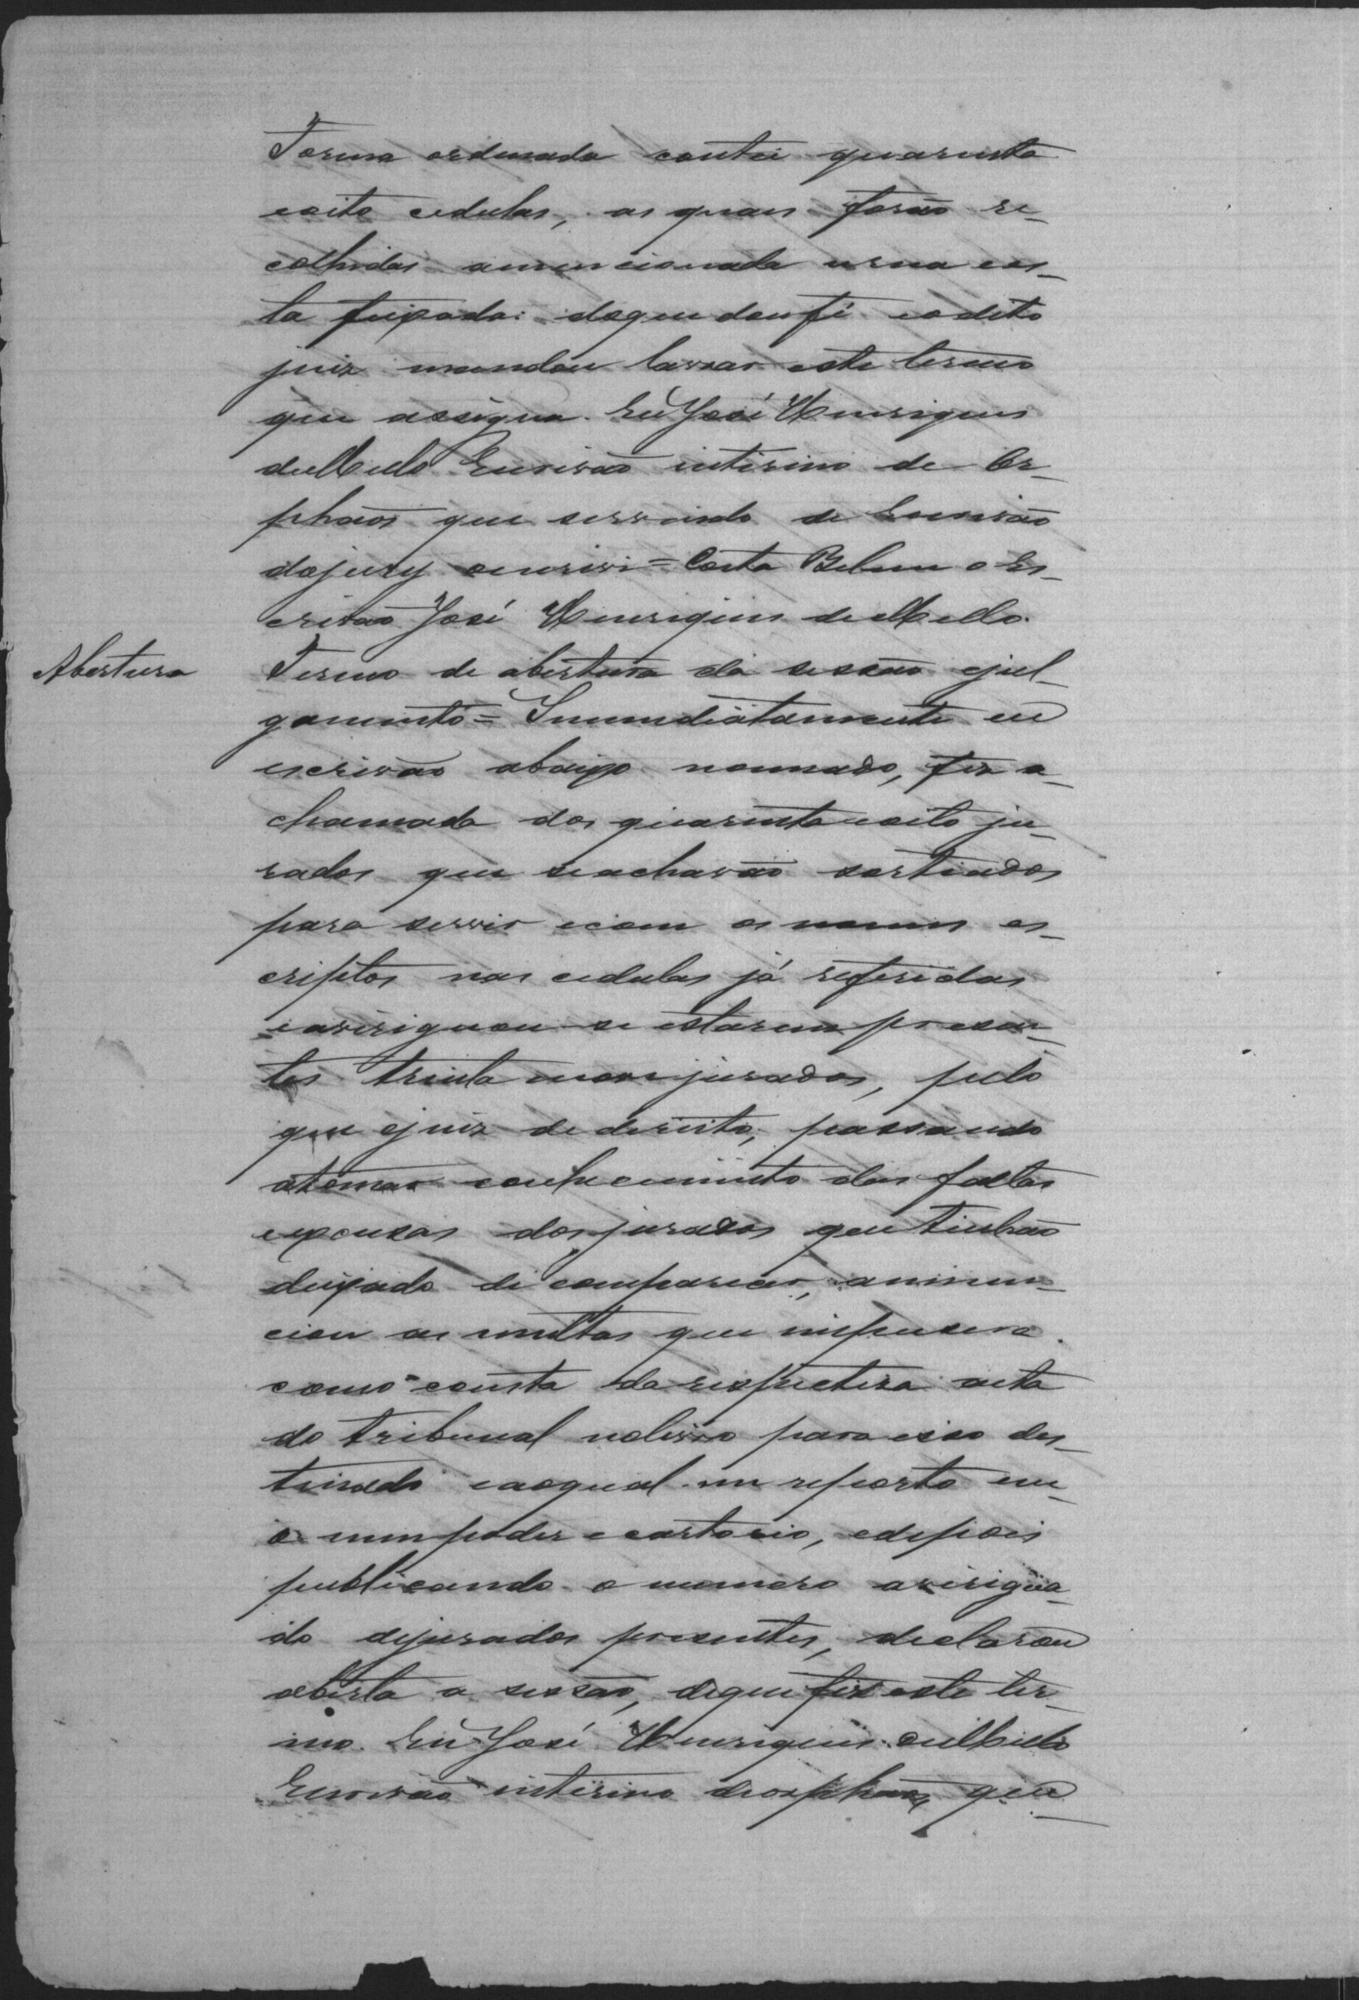 Forma ordenada contei quarenta
eoito cedulas, as quaes forão re-
colhidas amencionada urna es-
ta feixada: doque doufé eodito
juiz mandou lavrar este termo
que assigna. Eu José Henriques
deMello Escrivão interino de Or-
phaõs que servindo de Escrivão
dojury oescrevi = Costa Belem o Es-
crivão José Henriques deMello.
Abertura
Termo de abertura da sessão ejul-
gamento = Immediatamente eu
escrivão abaixo nomeado, fiz a
chamada dos quarenta eoito ju-
rados que seachavão sorteados
para servir ecom os nomes es-
criptos nas cedulas já referidas
eaveriguou-se estarem presen-
tes trinta enove jurados, pelo
que ojuiz dedireito, passando
atomar conhecimento das faltas
eexcusas dosjurados que tinhão
deixado de comparecer, annun-
ciou as multas que impusera
como consta da respectiva acta
do tribunal nolivro para isso des-
tinado eaoqual me reporto em
o meu poder ecartorio, edepois
publicando o numero averigua-
do dejurados presentes, declarou
aberta a sessão, deque fiz este ter-
mo. Eu José Henriques deMello
Escrivão interino deorphaõs que